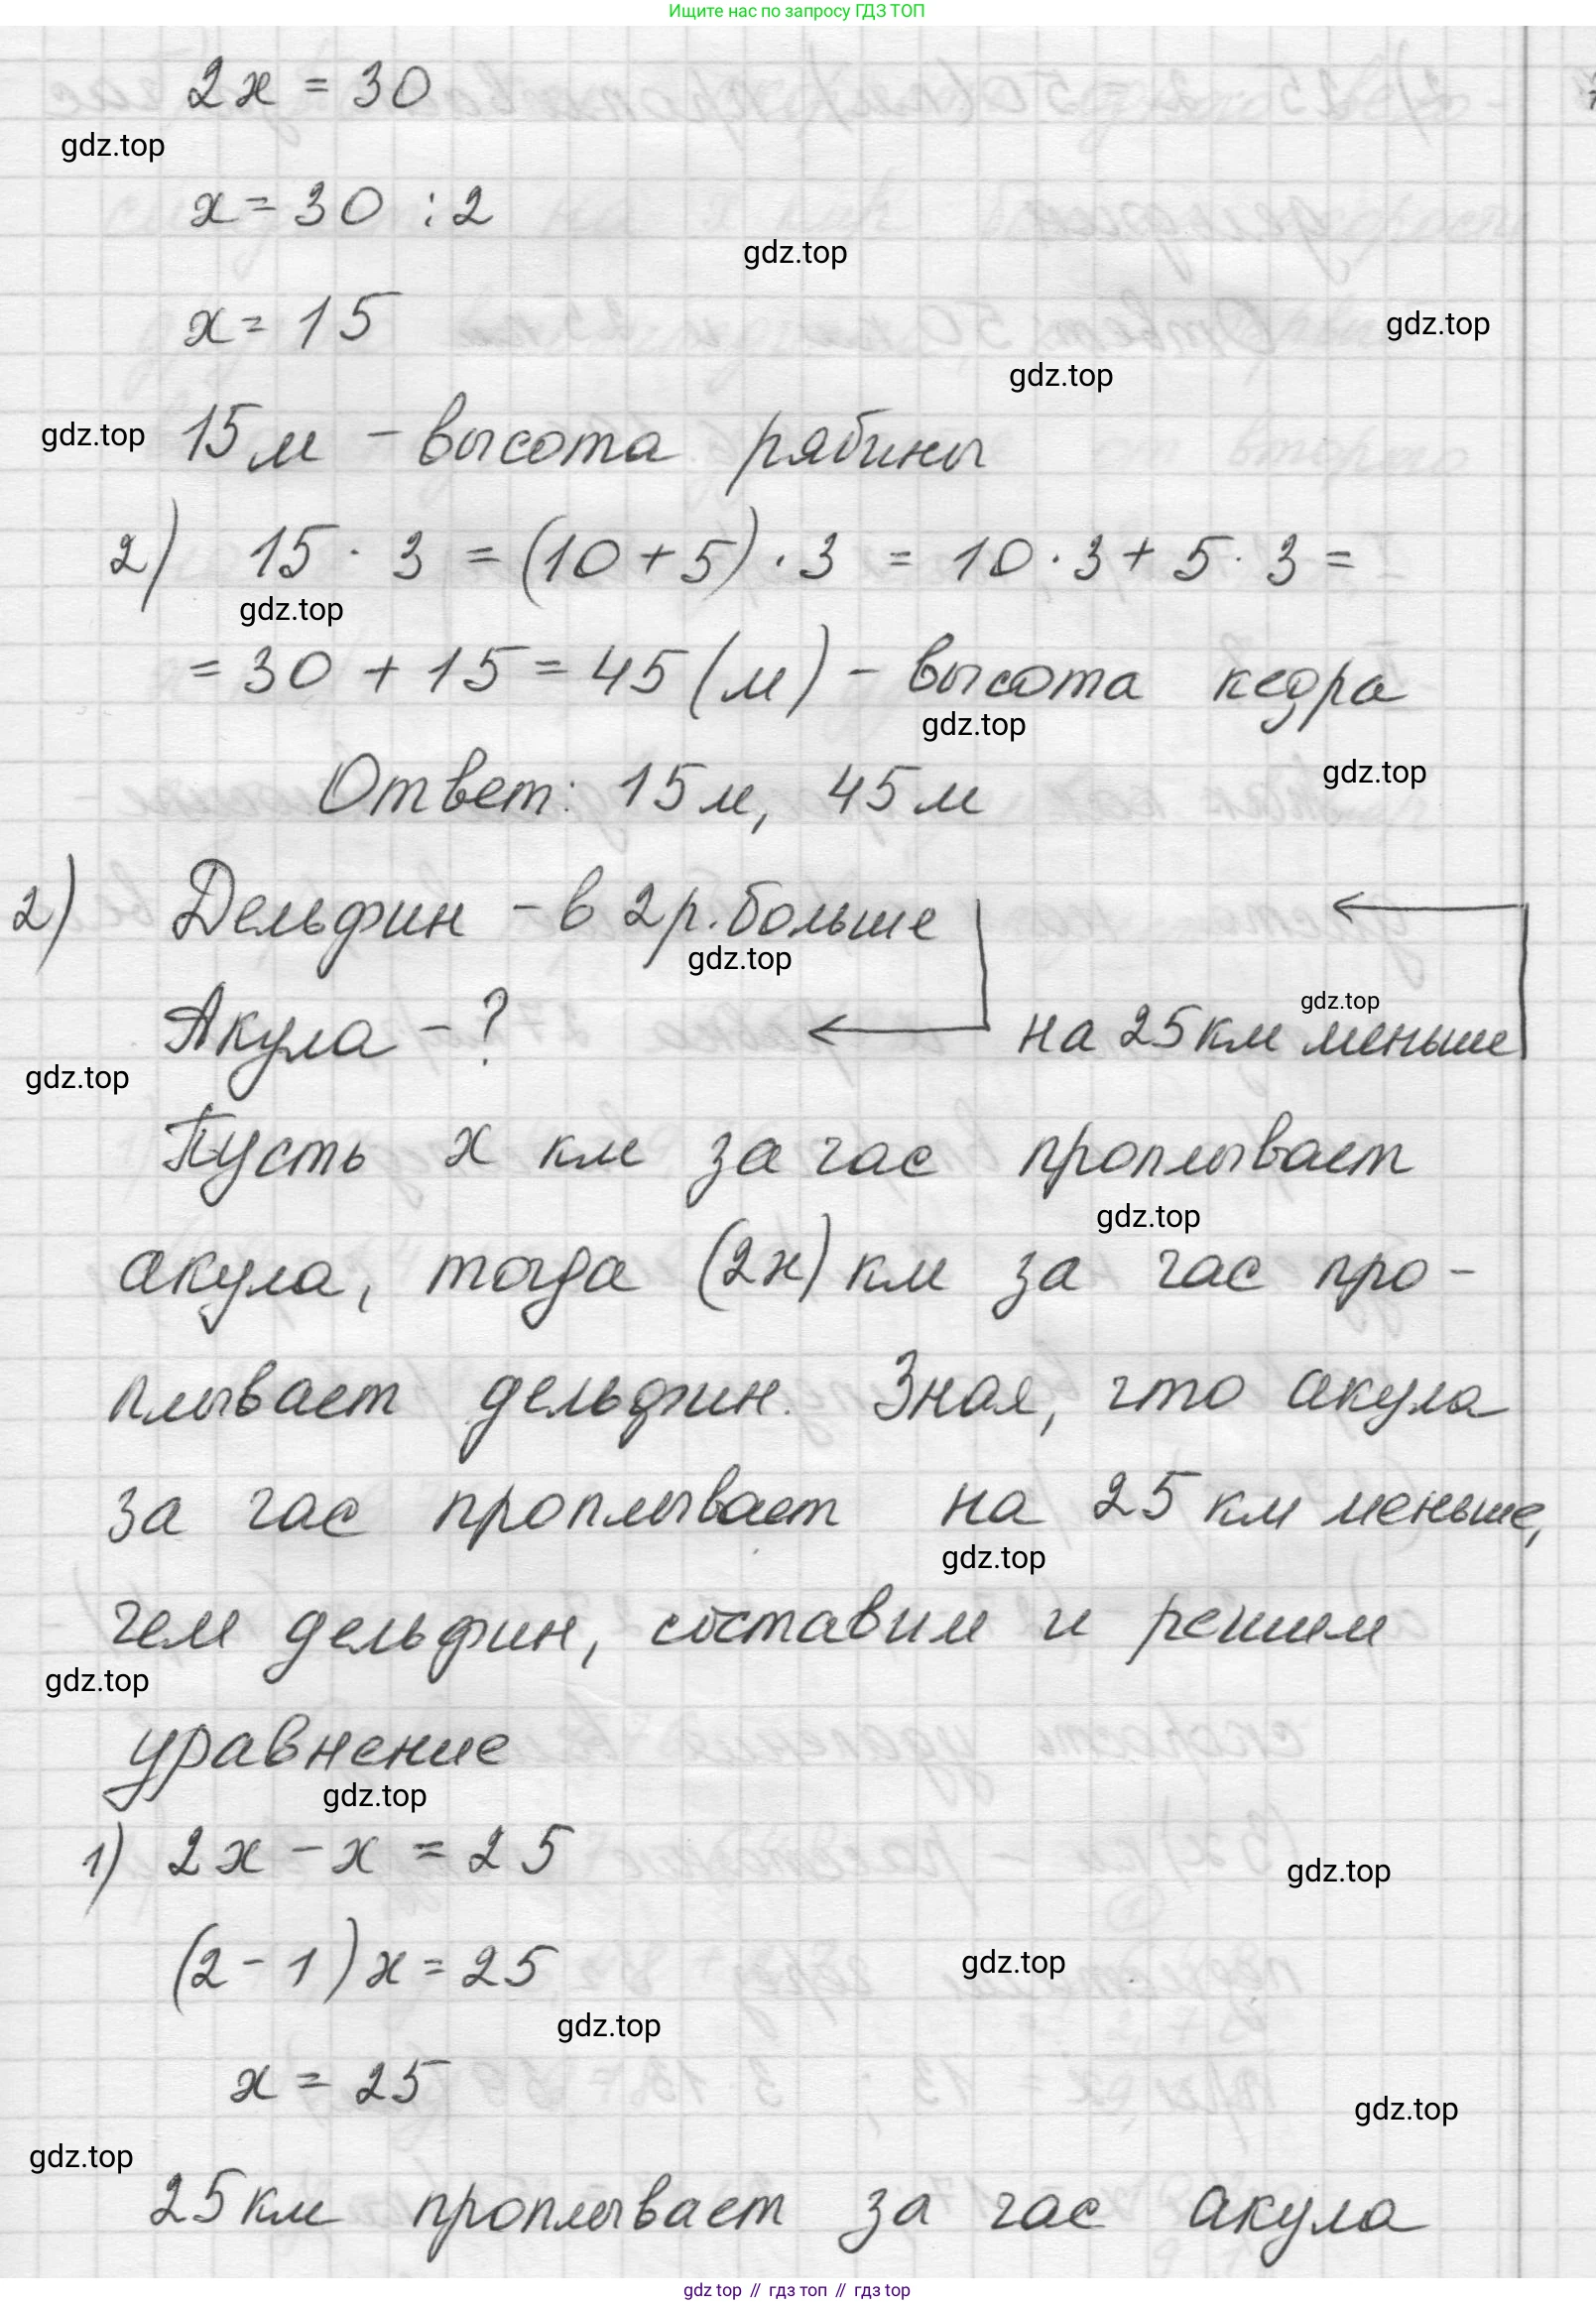 Ищите нас по запросу ГДЗ ТОП
2x = 30
gdz.top
x = 30 : 2
gdz.top
x = 15
gdz.top
gdz.top
gdz.top
15 м - высота рябины
2) 15 · 3 = (10 + 5) · 3 = 10 · 3 + 5 · 3 =
gdz.top
= 30 + 15 = 45 (м) - высота кедра
gdz.top
gdz.top
Ответ: 15 м, 45 м
2) Дельфин - в 2 р. больше
gdz.top
gdz.top
Акула - ? на 25 км меньше
gdz.top
Пусть x км за час проплывает
gdz.top
акула, тогда (2x) км за час про-
плывает дельфин. Зная, что акула
за час проплывает на 25 км меньше,
gdz.top
чем дельфин, составим и решим
gdz.top
уравнение
gdz.top
1) 2x - x = 25
gdz.top
(2 - 1) x = 25
gdz.top
gdz.top
x = 25
gdz.top
gdz.top
25 км проплывает за час акула
gdz top // гдз топ // gdz top